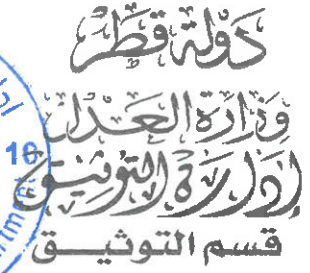 دولة قطر
وزارة العدل
إدارة التوثيق
قسم التوثيق
10